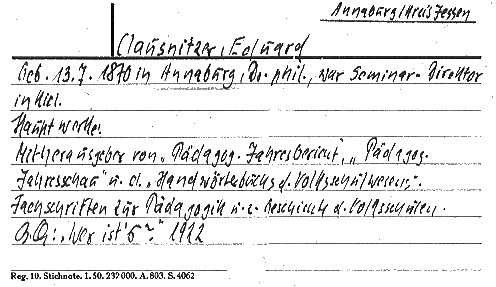 Annaburg/Kreis Jessen
Clausnitzer, Eduard
Geb. 13.7.1870 in Annaburg, Dr. phil., war Seminar-Direktor
in Kiel.
Hauptwerke:
Mitherausgeber von „Pädagog. Jahresbericht", „Pädagog.
Jahresschau" u. d. „Handwörterbuchs d. Volksschulwesens".
Fachschriften zur Pädagogik u. z. Geschichte d. Volksschulen.
„Wer ist's?" 1912
Reg. 10. Stichnote. 1. 50. 237000. A. 803. S. 4062